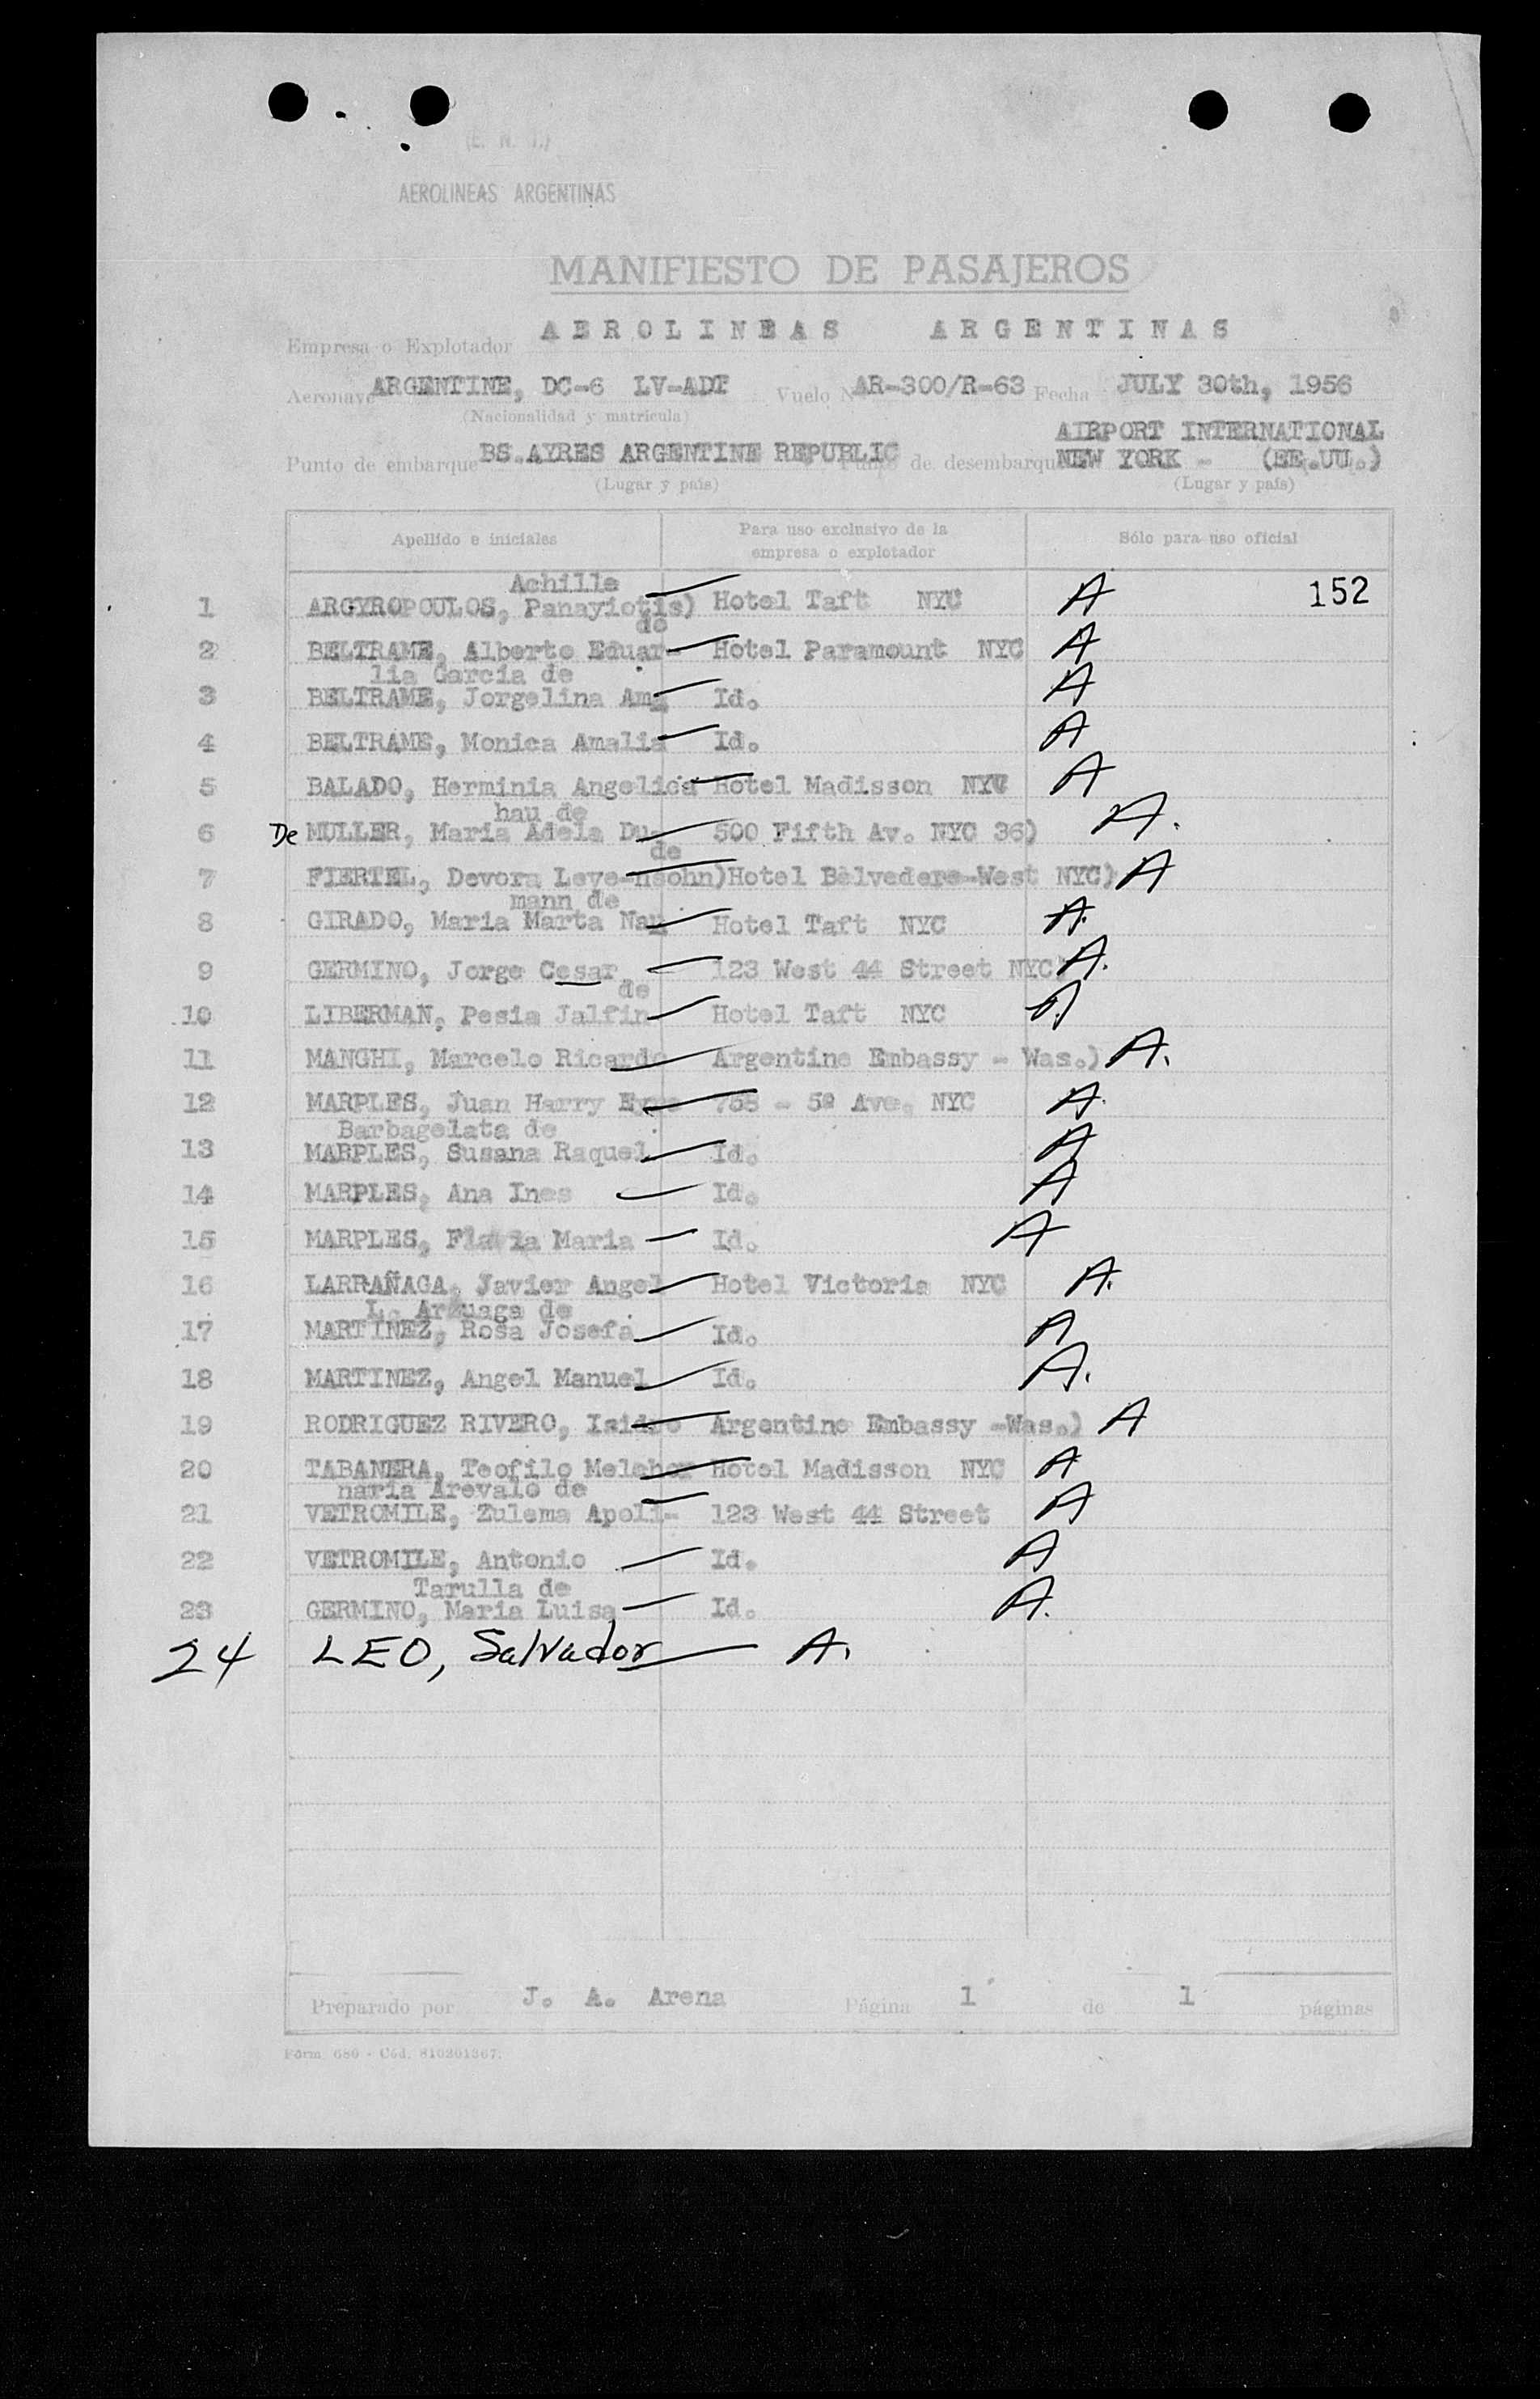 (E. N. T.)
AEROLINEAS ARGENTINAS
MANIFIESTO DE PASAJEROS
Empresa o Explotador AEROLINEAS ARGENTINAS
Aeronave ARGENTINE, DC-6 LV-ADF Vuelo Nº AR-300/R-63 Fecha JULY 30th, 1956
(Nacionalidad y matrícula)
AIRPORT INTERNATIONAL
Punto de embarque BS.AYRES ARGENTINE REPUBLIC Punto de desembarque NEW YORK - (EE.UU.)
(Lugar y país) (Lugar y país)
Apellido e iniciales Para uso exclusivo de la empresa o explotador Sólo para uso oficial
Achille
1 ARGYROPOULOS, Panayiotis) Hotel Taft NYC A 152
do
2 BELTRAME, Alberto Eduar- Hotel Paramount NYC A
lia Garcia de
3 BELTRAME, Jorgelina Ama Id. A
4 BELTRAME, Monica Amalia Id. A
5 BALADO, Herminia Angelica Hotel Madisson NYC A
hau de
6 De MULLER, Maria Adela Du- 500 Fifth Av. NYC 36) A.
de
7 FIERTEL, Devora Leve-nsohn) Hotel Belvedere-West NYC) A
mann de
8 GIRADO, Maria Marta Nau Hotel Taft NYC A.
9 GERMINO, Jorge Cesar 123 West 44 Street NYC) A.
de
10 LIBERMAN, Pesia Jalfin Hotel Taft NYC A
11 MANGHI, Marcelo Ricardo Argentine Embassy - Was.) A.
12 MARPLES, Juan Harry 758 - 5ª Ave. NYC A.
Barbagelata de
13 MARPLES, Susana Raquel Id. A
14 MARPLES, Ana Ines Id. A
15 MARPLES, Flavia Maria Id. A
16 LARRAÑAGA, Javier Angel Hotel Victoria NYC A.
L. Arzuaga de
17 MARTINEZ, Rosa Josefa Id. A
18 MARTINEZ, Angel Manuel Id. A.
19 RODRIGUEZ RIVERO, Isidro Argentine Embassy -Was.) A
20 TABANERA, Teofilo Melchor Hotel Madisson NYC A
naria Arevalo de
21 VETROMILE, Zulema Apoli- 123 West 44 Street A
22 VETROMILE, Antonio Id. A
Tarulla de
23 GERMINO, Maria Luisa Id. A.
24 LEO, Salvador A.
Preparado por J. A. Arena Página 1 de 1 páginas
Form. 680 - Cód. 810301367.